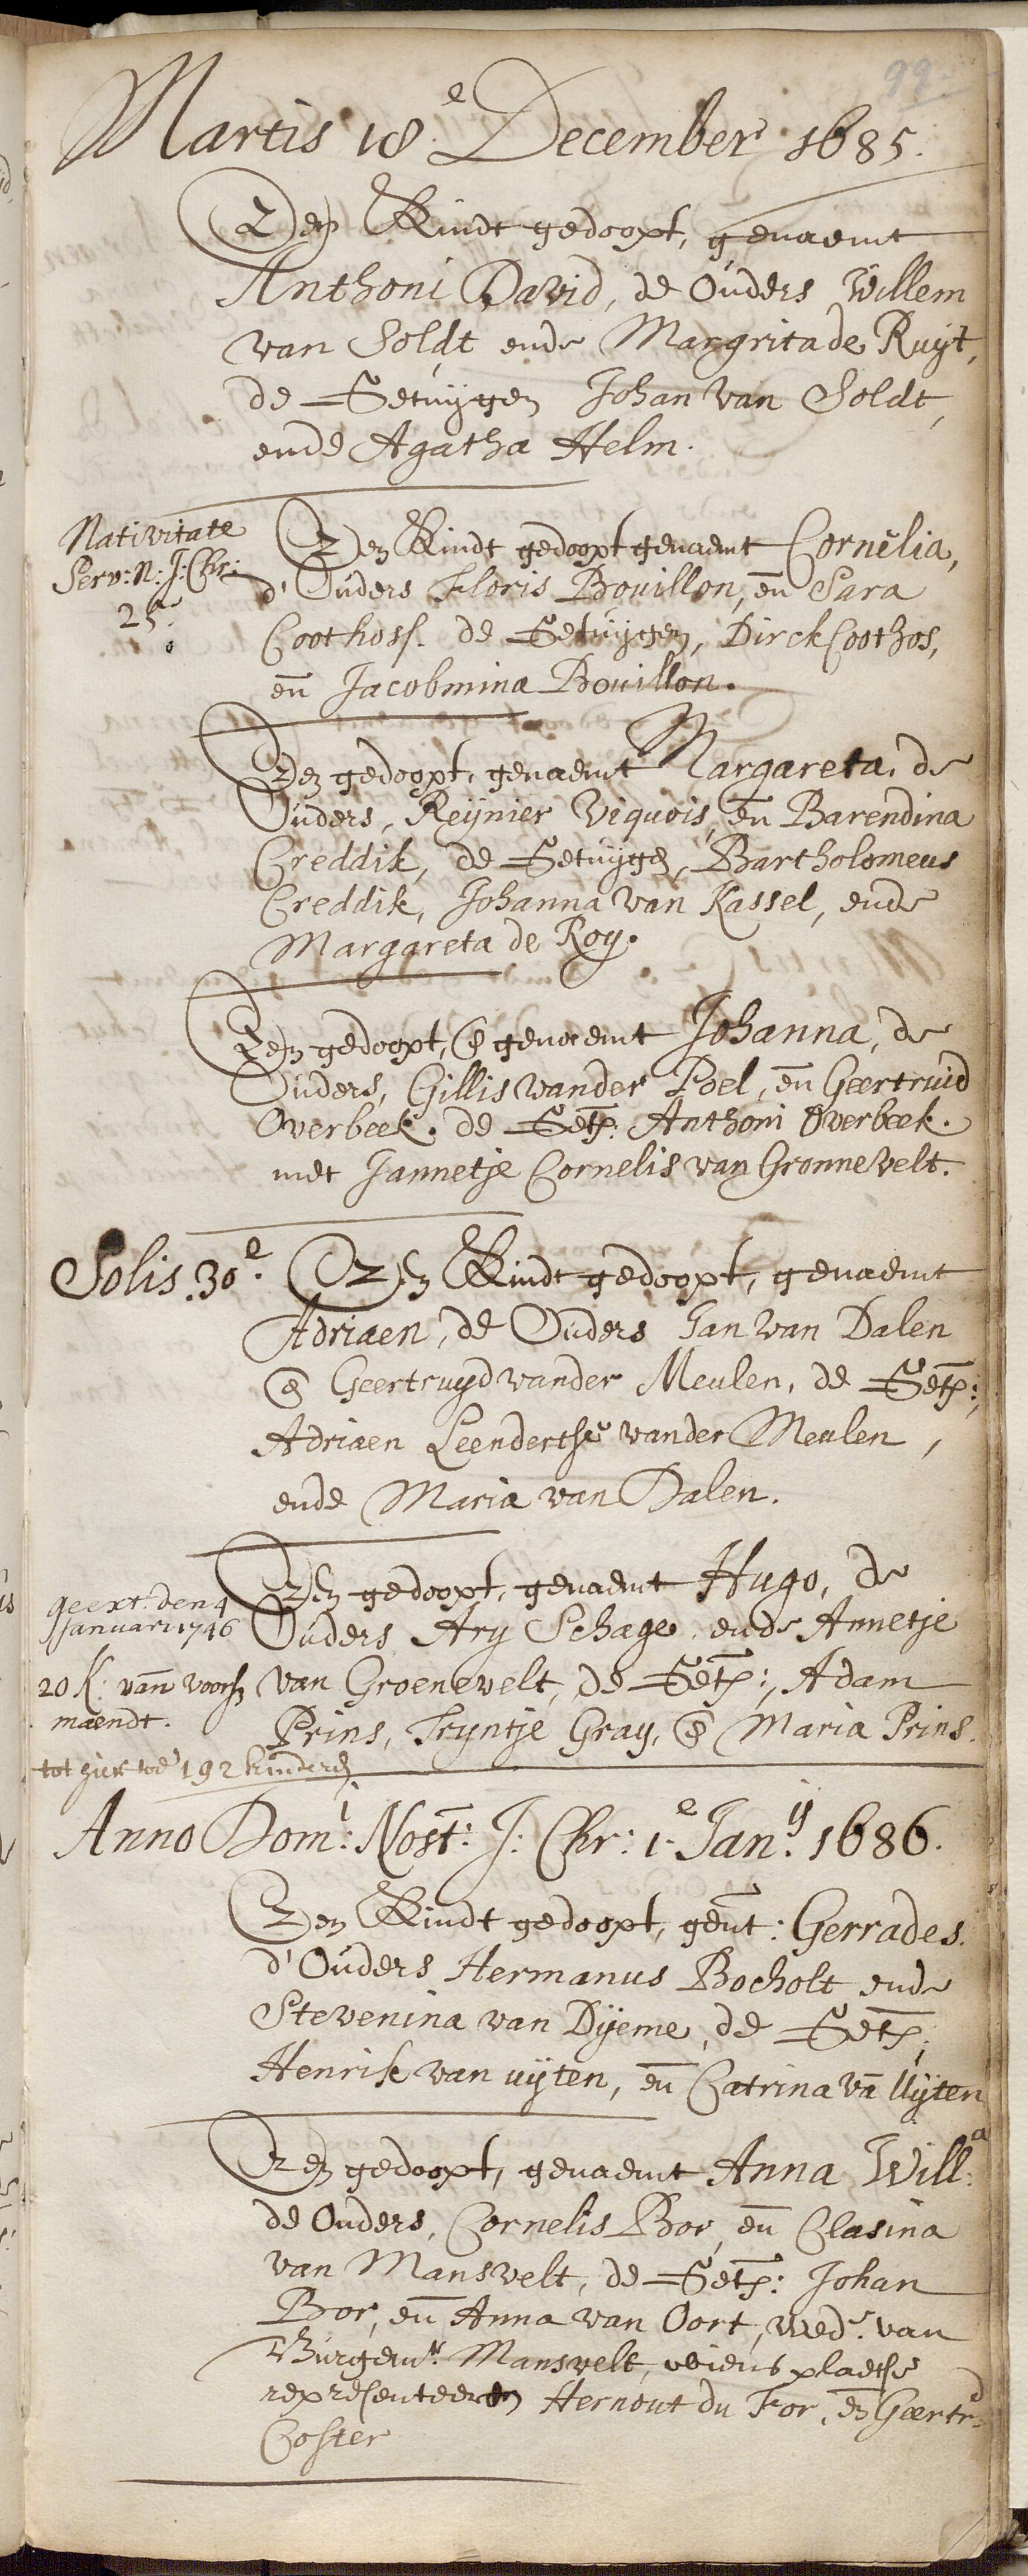 99
Martis 18.e December 1685.
Een Kindt gedoopt, genaemt
Anthoni David, de Ouders Willem
van Soldt ende Margrita de Ruyt,
de Getuygen Johan van Soldt,
ende Agatha Helm.
Nativitate
Serv: N: J: Chr:
25.e
Een Kindt gedoopt genaemt Cornelia,
d' Ouders Floris Bouillon, en Sara
Coothoss. de Getuygen, Dirck Coothos,
en Jacobmina Bouillon.
Een gedoopt, genaemt Margareta, de
Ouders, Reynier Viquois, en Barendina
Creddik, de Getuygen, Bartholomeus
Creddik, Johanna van Kassel, ende
Margareta de Roy.
Een gedoopt, en genaemt Johanna, de
Ouders, Gillis vander Poel, en Geertruid
Overbeek. de Get: Anthoni Overbeek.
met Jannetje Cornelis van Gronnevelt.
Solis. 30.e Een Kindt gedoopt, genaemt
Adriaen, de Ouders Jan van Dalen
en Geertruyd vander Meulen, de Get:,
Adriaen Leendertse vander Meulen,
ende Maria van Dalen.
Een gedoopt, genaemt Hugo, de
geext. den 4
Januari 1746
Ouders Ary Schage, ende Annetje
20 K. van voorsz
van Groenevelt, de Get:, Adam
maendt.
Prins, Tryntje Gray, en Maria Prins.
tot hier toe 192 kinderen
Anno Domi: Nost: J: Chr: 1.e Jan.ij 1686.
Een Kindt gedoopt, gent: Gerrades.
d' Ouders Hermanus Bocholt ende
Stevenina van Dyeme, de Get:,
Henrik van uyten, en Catrina va Uyten
Een gedoopt, genaemt Anna Will:a
de Ouders, Cornelis Bor, en Clasina
van Mansvelt, de Get: Johan
Bor, en Anna van Oort, wed.e van
Burgemr. Mansvelt, wiens plaetse
representeerden Hernout du For, en Geertr.d
Coster